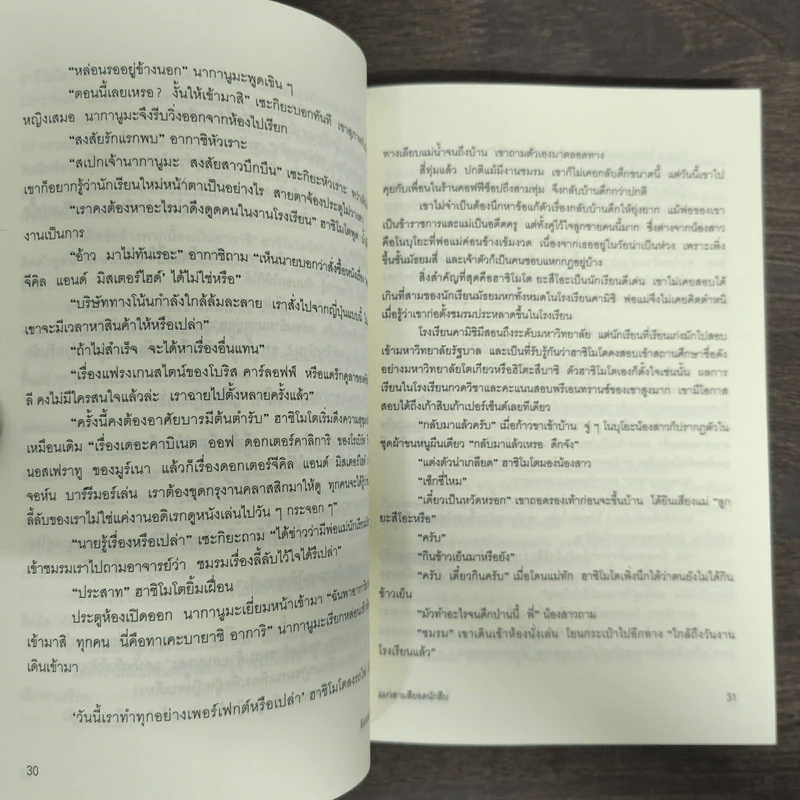 “หล่อนรออยู่ข้างนอก” นากานูมะพูดเขิน ๆ
“ตอนนี้เลยเหรอ? งั้นให้เข้ามาสิ” เซะกิยะบอกทันที
หญิงเสมอ นากานูมะจึงรีบวิ่งออกจากห้องไปเรียก
“สงสัยรักแรกพบ” อากาชิหัวเราะ
“สเปกเจ้านากานูมะ สงสัยสาวบึกบึน” เซะกิยะหัวเราะ
เขาก็อยากรู้ว่านักเรียนใหม่หน้าตาเป็นอย่างไร สายตาจ้องประตูไม่วางตา
“เราคงต้องหาอะไรมาดึงดูดคนในงานโรงเรียน” ฮาชิโมโตพูด
งานเป็นการ
“อ้าว มาไม่ทันเรอะ” อากาชิถาม “เห็นนายบอกว่าสั่งซื้อหนังเรื่อง
จีคิล แอนด์ มิสเตอร์ไฮด์’ ได้ไม่ใช่หรือ”
“บริษัททางโน้นกำลังใกล้ล้มละลาย เราสั่งไปจากญี่ปุ่นแบบนี้
เขาจะมีเวลาหาสินค้าให้หรือเปล่า”
“ถ้าไม่สำเร็จ จะได้หาเรื่องอื่นแทน”
“เรื่องแฟรงเกนสไตน์ของโบริส คาร์ลอฟฟ์ หรือแดร็กคูลาของ
ลี คงไม่มีใครสนใจแล้วล่ะ เราฉายไปตั้งหลายครั้งแล้ว”
“ครั้งนี้คงต้องอาศัยบารมีต้นตำรับ” ฮาชิโมโตเริ่มดึงความสุขุม
เหมือนเดิม “เรื่องเดอะคาบิเนต ออฟ ดอกเตอร์คาลิการิ ของโรเบิร์ต
นอสเฟราทู ของมูร์เนา แล้วก็เรื่องดอกเตอร์จีคิล แอนด์ มิสเตอร์ไฮด์
จอห์น บาร์รีมอร์เล่น เราต้องขุดกรุงานคลาสสิกมาให้ดู ทุกคนจะได้รู้
ลี้ลับของเราไม่ใช่แค่งานอดิเรกดูหนังเล่นไปวัน ๆ กระจอก ๆ”
“นายรู้เรื่องหรือเปล่า” เซะกิยะถาม “ได้ข่าวว่ามีพ่อแม่นักเรียน
เข้าชมรมเราไปถามอาจารย์ว่า ชมรมเรื่องลี้ลับไว้ใจได้รึเปล่า”
“ประสาท” ฮาชิโมโตยิ้มเฝื่อน
ประตูห้องเปิดออก นากานูมะเยี่ยมหน้าเข้ามา
เข้ามาสิ ทุกคน นี่คือทาเคะบายาชิ อาการิ” นากานูมะเรียกหล่อน
เดินเข้ามา
‘วันนี้เราทำทุกอย่างเพอร์เฟกต์หรือเปล่า’ ฮาชิโมโตลงรถไฟ
30
ทางเลียบแม่น้ำจนถึงบ้าน เขาถามตัวเองมาตลอดทาง
สี่ทุ่มแล้ว ปกติแม้มีงานชมรม เขาก็ไม่เคยกลับดึกขนาดนี้ แต่วันนี้เขาไป
คุยกับเพื่อนในร้านคอฟฟี่ช็อปถึงสามทุ่ม จึงกลับบ้านดึกกว่าปกติ
เขาไม่จำเป็นต้องนึกหาข้อแก้ตัวเรื่องกลับบ้านดึกให้ยุ่งยาก แม้พ่อของเขา
เป็นข้าราชการและแม่เป็นอดีตครู แต่ทั้งคู่ไว้ใจลูกชายคนนี้มาก ซึ่งต่างจากน้องสาว
คือโนบุโยะที่พ่อแม่ค่อนข้างเข้มงวด เนื่องจากเธออยู่ในวัยน่าเป็นห่วง เพราะเพิ่ง
ขึ้นชั้นมัธยมสี่ และเจ้าตัวก็เป็นคนชอบแหกกฎอยู่บ้าง
สิ่งสำคัญที่สุดคือฮาชิโมโต ยะสึโอะเป็นนักเรียนดีเด่น เขาไม่เคยสอบได้
เกินที่สามของนักเรียนมัธยมหกทั้งหมดในโรงเรียนคามิชิ พ่อแม่จึงไม่เคยคิดตำหนิ
เมื่อรู้ว่าเขาก่อตั้งชมรมประหลาดขึ้นในโรงเรียน
โรงเรียนคามิชิมีสอนถึงระดับมหาวิทยาลัย แต่นักเรียนที่เรียนเก่งมักไปสอบ
เข้ามหาวิทยาลัยรัฐบาล และเป็นที่รับรู้กันว่าฮาชิโมโตคงสอบเข้าสถานศึกษาชื่อดัง
อย่างมหาวิทยาลัยโตเกียวหรือฮิโตะสึบาชิ ตัวฮาชิโมโตเองก็ตั้งใจเช่นนั้น ผลการ
เรียนในโรงเรียนกวดวิชาและคะแนนสอบพรีเอนทรานซ์ของเขาสูงมาก เขามีโอกาส
สอบได้ถึงเก้าสิบเก้าเปอร์เซ็นต์เลยทีเดียว
“กลับมาแล้วครับ” เมื่อก้าวขาเข้าบ้าน จู่ ๆ โนบุโยะน้องสาวก็ปรากฏตัวใน
ชุดผ้าขนหนูผืนเดียว “กลับมาแล้วเหรอ ดึกจัง”
“แต่งตัวน่าเกลียด” ฮาชิโมโตมองน้องสาว
“เซ็กซี่ไหม”
“เดี๋ยวเป็นหวัดหรอก” เขาถอดรองเท้าก่อนจะขึ้นบ้าน ได้ยินเสียงแม่ “ลูก
ยะสึโอะหรือ”
“ครับ”
“กินข้าวเย็นมาหรือยัง”
“ครับ เดี๋ยวกินครับ” เมื่อโดนแม่ทัก ฮาชิโมโตเพิ่งนึกได้ว่าตนยังไม่ได้กิน
ข้าวเย็น
“มัวทำอะไรจนดึกป่านนี้ พี่” น้องสาวถาม
“ชมรม” เขาเดินเข้าห้องนั่งเล่น โยนกระเป๋าไปอีกทาง “ใกล้ถึงวันงาน
โรงเรียนแล้ว”
แมวสามสียอดนักสืบ
31